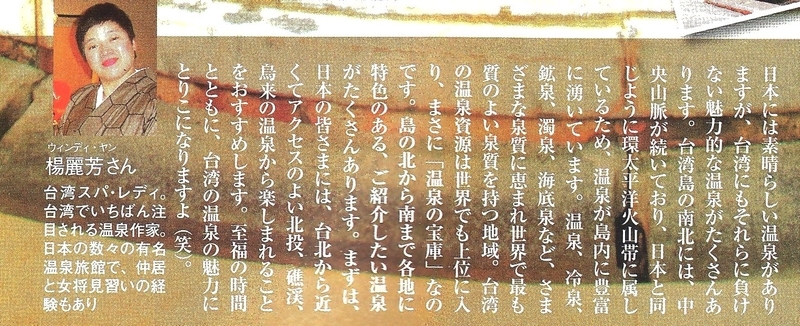 日本には素晴らしい温泉があり
ますが、台湾にもそれらに負け
ない魅力的な温泉がたくさんあ
ります。台湾島の南北には、中
央山脈が続いており、日本と同
じように環太平洋火山帯に属し
ているため、温泉が島内に豊富
に湧いています。温泉、冷泉、
鉱泉、濁泉、海底泉など、さま
ざまな泉質に恵まれ世界で最も
質のよい泉質を持つ地域。台湾
の温泉資源は世界でも上位に入
り、まさに「温泉の宝庫」なの
です。島の北から南まで各地に
特色のある、ご紹介したい温泉
がたくさんあります。まずは、
日本の皆さまには、台北から近
くてアクセスのよい北投、礁渓、
烏来の温泉から楽しまれること
をおすすめします。至福の時間
とともに、台湾の温泉の魅力に
とりこになりますよ（笑）。
ウィンディ・ヤン
楊麗芳さん
台湾スパ・レディ。
台湾でいちばん注
目される温泉作家。
日本の数々の有名
温泉旅館で、仲居
と女将見習いの経
験もあり